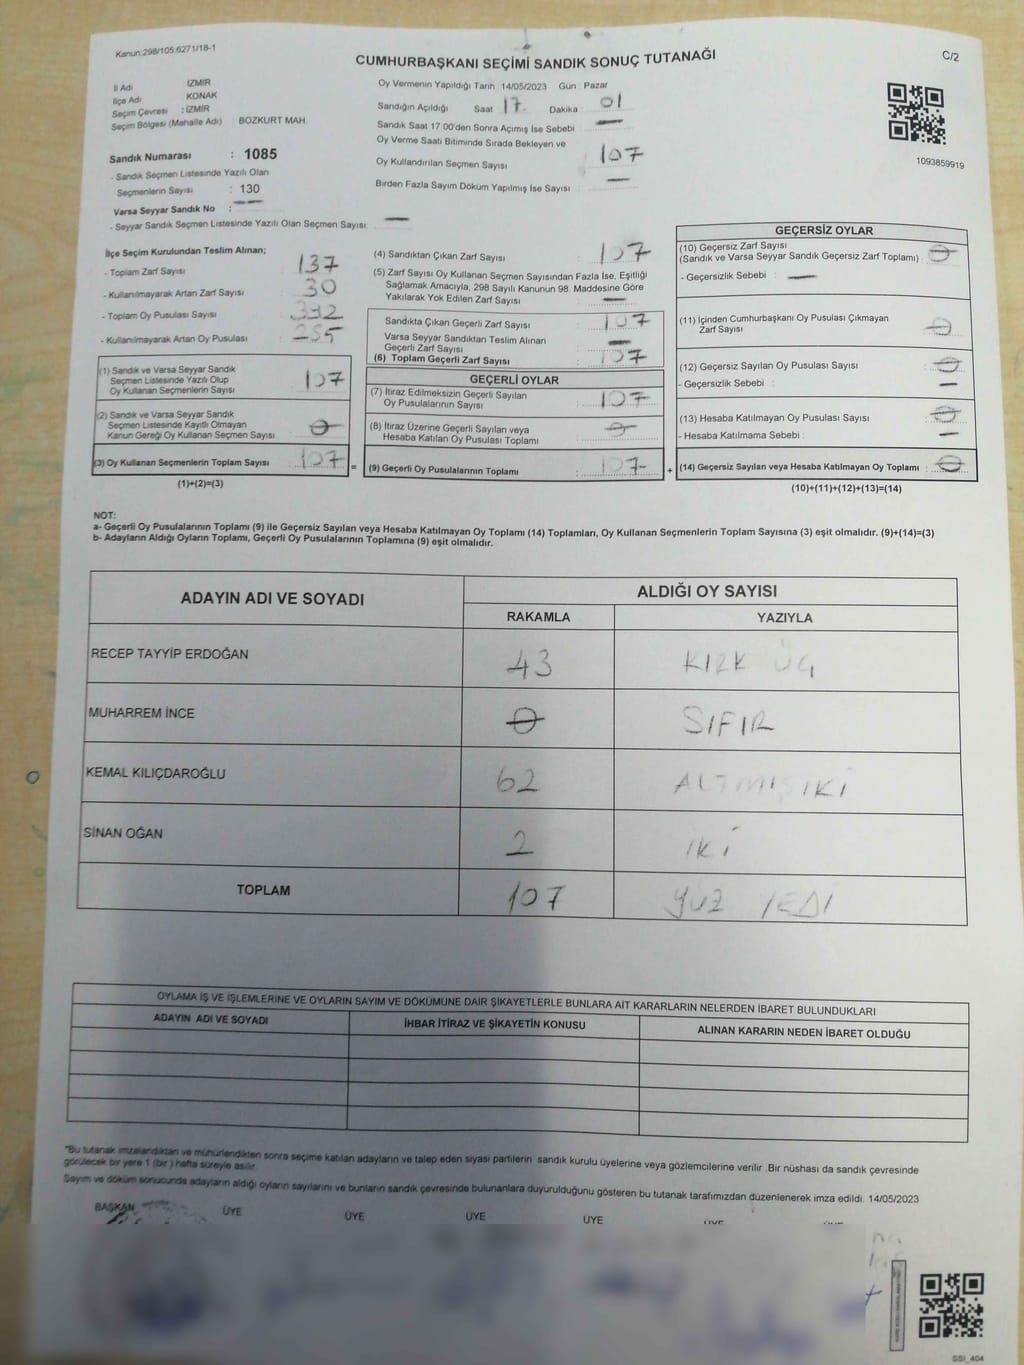 Kanun:298/105.6271/18-1
CUMHURBAŞKANI SEÇİMİ SANDIK SONUÇ TUTANAĞI
C/2
İl Adı İZMİR
İlçe Adı KONAK
Seçim Çevresi : İZMİR
Seçim Bölgesi (Mahalle Adı) : BOZKURT MAH.
Oy Vermenin Yapıldığı Tarih :14/05/2023 Gün : Pazar
Sandığın Açıldığı Saat 17 Dakika 01
Sandık Saat 17:00'den Sonra Açımış İse Sebebi —
Oy Verme Saati Bitiminde Sırada Bekleyen ve
Oy Kullandırılan Seçmen Sayısı : 107
Birden Fazla Sayım Döküm Yapılmış İse Sayısı : —
1093859919
Sandık Numarası : 1085
- Sandık Seçmen Listesinde Yazılı Olan
Seçmenlerin Sayısı : 130
Varsa Seyyar Sandık No : —
- Seyyar Sandık Seçmen Listesinde Yazılı Olan Seçmen Sayısı: —
İlçe Seçim Kurulundan Teslim Alınan;
- Toplam Zarf Sayısı : 137
- Kullanılmayarak Artan Zarf Sayısı : 30
- Toplam Oy Pusulası Sayısı : 392
- Kullanılmayarak Artan Oy Pusulası : 285
(1) Sandık ve Varsa Seyyar Sandık
Seçmen Listesinde Yazılı Olup
Oy Kullanan Seçmenlerin Sayısı : 107
(2) Sandık ve Varsa Seyyar Sandık
Seçmen Listesinde Kayıtlı Olmayan
Kanun Gereği Oy Kullanan Seçmen Sayısı : 0
(3) Oy Kullanan Seçmenlerin Toplam Sayısı : 107
(1)+(2)=(3)
(4) Sandıktan Çıkan Zarf Sayısı : 107
(5) Zarf Sayısı Oy Kullanan Seçmen Sayısından Fazla İse, Eşitliği
Sağlamak Amacıyla, 298 Sayılı Kanunun 98. Maddesine Göre
Yakılarak Yok Edilen Zarf Sayısı : —
Sandıkta Çıkan Geçerli Zarf Sayısı : 107
Varsa Seyyar Sandıktan Teslim Alınan
Geçerli Zarf Sayısı : —
(6) Toplam Geçerli Zarf Sayısı : 107
GEÇERLİ OYLAR
(7) İtiraz Edilmeksizin Geçerli Sayılan
Oy Pusulalarının Sayısı : 107
(8) İtiraz Üzerine Geçerli Sayılan veya
Hesaba Katılan Oy Pusulası Toplamı : 0
= (9) Geçerli Oy Pusulalarının Toplamı : 107 +
GEÇERSİZ OYLAR
(10) Geçersiz Zarf Sayısı
(Sandık ve Varsa Seyyar Sandık Geçersiz Zarf Toplamı) : 0
- Geçersizlik Sebebi : —
(11) İçinden Cumhurbaşkanı Oy Pusulası Çıkmayan
Zarf Sayısı : 0
(12) Geçersiz Sayılan Oy Pusulası Sayısı : 0
- Geçersizlik Sebebi : —
(13) Hesaba Katılmayan Oy Pusulası Sayısı : 0
- Hesaba Katılmama Sebebi : —
(14) Geçersiz Sayılan veya Hesaba Katılmayan Oy Toplamı : 0
(10)+(11)+(12)+(13)=(14)
NOT:
a- Geçerli Oy Pusulalarının Toplamı (9) ile Geçersiz Sayılan veya Hesaba Katılmayan Oy Toplamı (14) Toplamları, Oy Kullanan Seçmenlerin Toplam Sayısına (3) eşit olmalıdır. (9)+(14)=(3)
b- Adayların Aldığı Oyların Toplamı, Geçerli Oy Pusulalarının Toplamına (9) eşit olmalıdır.
ADAYIN ADI VE SOYADI ALDIĞI OY SAYISI
RAKAMLA YAZIYLA
RECEP TAYYİP ERDOĞAN 43 KIRK ÜÇ
MUHARREM İNCE 0 SIFIR
KEMAL KILIÇDAROĞLU 62 ALTMIŞ İKİ
SİNAN OĞAN 2 İKİ
TOPLAM 107 YÜZ YEDİ
OYLAMA İŞ VE İŞLEMLERİNE VE OYLARIN SAYIM VE DÖKÜMÜNE DAİR ŞİKAYETLERLE BUNLARA AİT KARARLARIN NELERDEN İBARET BULUNDUKLARI
ADAYIN ADI VE SOYADI İHBAR İTİRAZ VE ŞİKAYETİN KONUSU ALINAN KARARIN NEDEN İBARET OLDUĞU
*Bu tutanak imzalandıktan ve mühürlendikten sonra seçime katılan adayların ve talep eden siyasi partilerin sandık kurulu üyelerine veya gözlemcilerine verilir .Bir nüshası da sandık çevresinde
görülecek bir yere 1 (bir ) hafta süreyle asılır.
Sayım ve döküm sonucunda adayların aldığı oyların sayılarını ve bunların sandık çevresinde bulunanlara duyurulduğunu gösteren bu tutanak tarafımızdan düzenlenerek imza edildi. 14/05/2023
BAŞKAN ÜYE ÜYE ÜYE ÜYE ÜYE
SSI_404